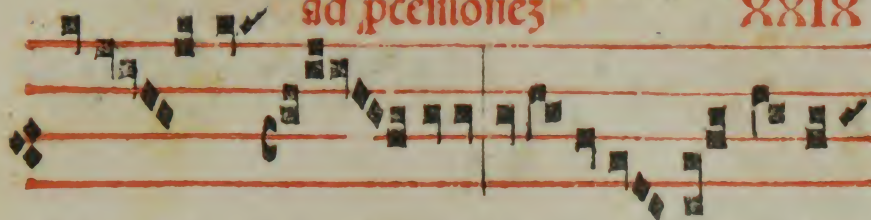 ad pcessionez XXIX